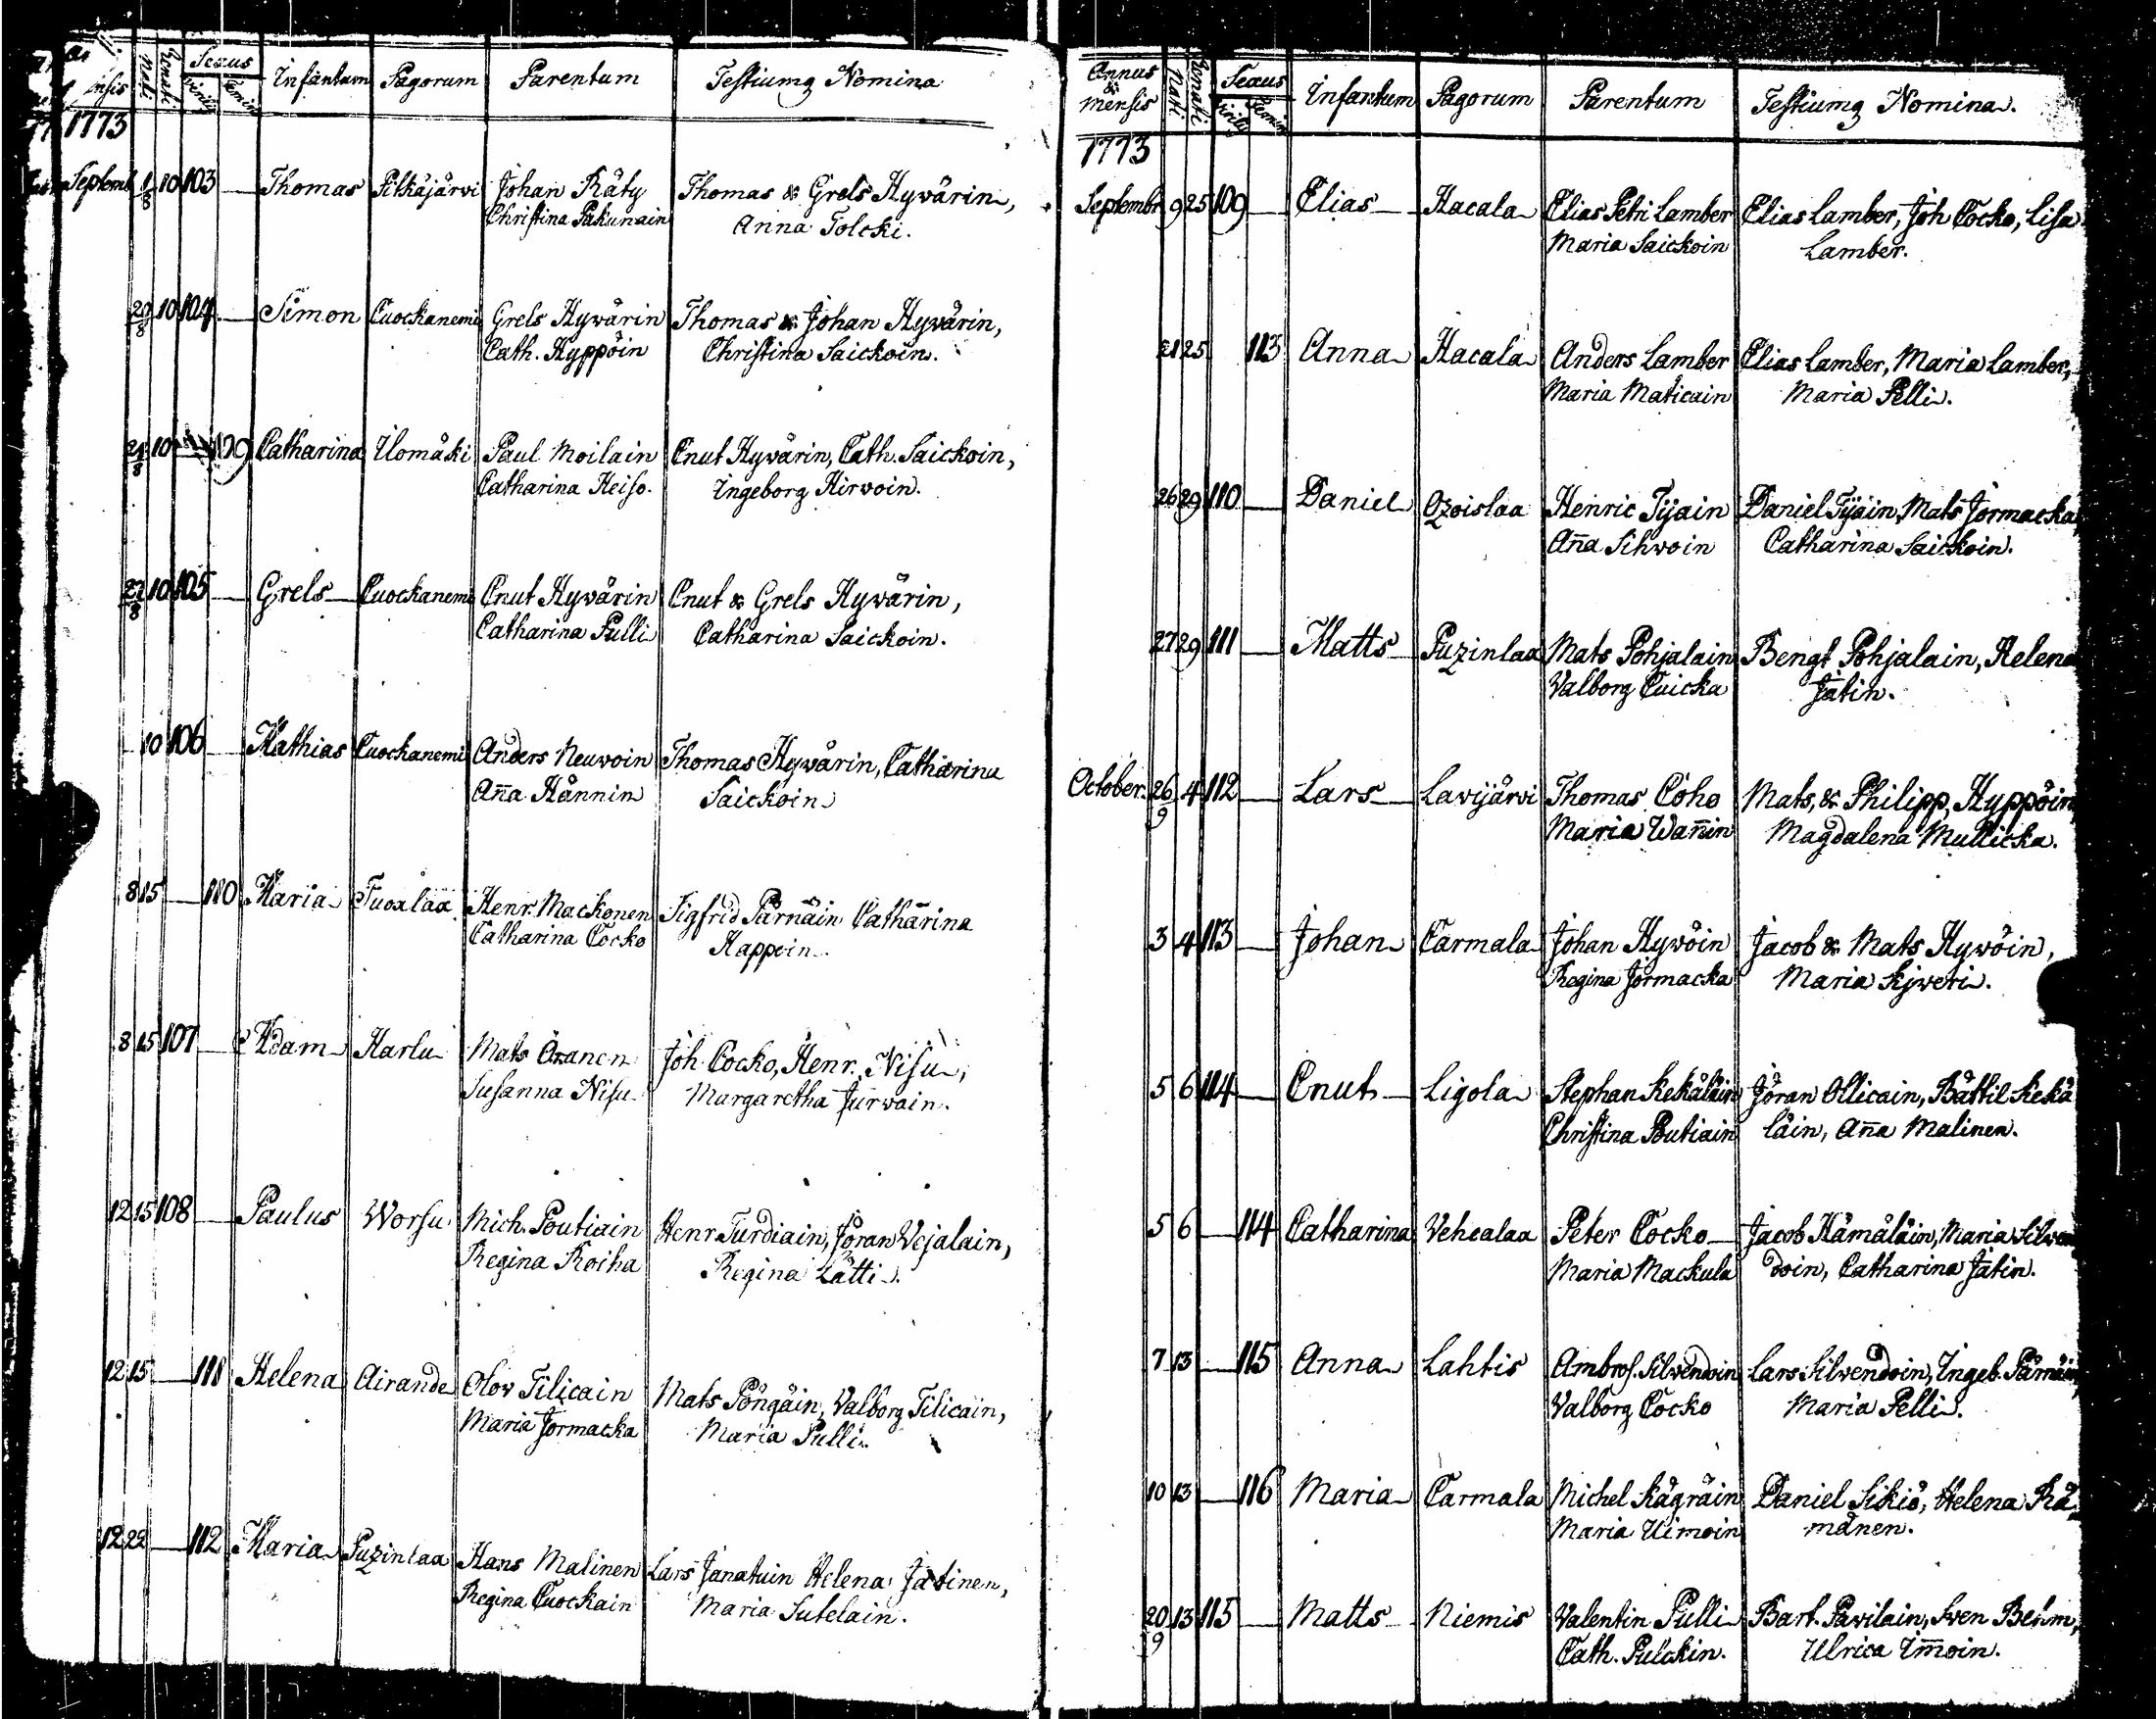 Mensis Nati Renati Sexus Infantum Pagorum Parentum Testiumq Nomina
Virilis Femin
1773
Septemb. 1/8 10 103 — Thomas Pitkäjärvi Johan Räty Thomas & Grels Hywärin,
Christina Pakunain Anna Tolcki.
29/8 10 104 — Simon Cuockanemi Grels Hywärin Thomas & Johan Hywärin,
Cath. Hyppöin Christina Saickoin.
24/8 10 109 Catharina Ilomäki Paul Moilain Cnut Hywärin, Cath. Saickoin,
Catharina Heiso. Ingeborg Hirwoin.
27/8 10 105 — Grels Cuockanemi Cnut Hywärin Cnut & Grels Hywärin,
Catharina Pulli Catharina Saickoin.
10 106 — Mathias Cuockanemi Anders Neuwoin Thomas Hywärin, Catharina
Aña Hännin Saickoin
8 15 — 110 Maria Tuoxlax Henr. Mackonen Sigfrid Pärnäin Catharina
Catharina Cocko Happoin.
8 15 107 — Adam Harlu Mats Oranen Joh. Cocko, Henr. Nisu,
Susanna Nisu Margaretha Jurwain.
12 15 108 — Paulus Worsu Mich. Poutiain Henr. Turdiain, Jöran Wejalain,
Regina Roiha Regina Lätti.
12 15 — 111 Helena Airande Olov Tilicain Mats Pöngäin, Valborg Tilicain,
Maria Jormacka Maria Pulli.
12 22 — 112 Maria Puzinlax Hans Malinen Lars Janatuin Helena Jätinen,
Regina Cuockain Maria Sutelain.
Annus & Mensis Nati Renati Sexus Infantum Pagorum Parentum Testiumq Nomina.
Virilis Femin
1773
Septembr. 9 25 109 — Elias Hacala Elias Petri Lamber Elias Lamber, Joh Cocko, Lisa
Maria Saickoin Lamber.
21 25 113 Anna Hacala Anders Lamber Elias Lamber, Maria Lamber,
Maria Maticain Maria Pelli.
26 29 110 — Daniel Ozoislax Henric Tijain Daniel Tijäin, Mats Jormacka,
Aña Sihwoin Catharina Saickoin.
27 29 111 — Matts Puzinlax Mats Pohjalain Bengt Pohjalain, Helena
Valborg Cuicka Jätin.
October. 26/9 4 112 — Lars Lavijärvi Thomas Coho Mats, & Philipp, Hyppöin,
Maria Wañin Magdalena Mullicka.
3 4 113 — Johan Carmala Johan Hywöin Jacob & Mats Hywöin,
Regina Jormacka Maria Kjweri.
5 6 114 — Cnut Ligola Stephan Kekäläin Jöran Ollicain, Bättil Kekä
Christina Poutiain läin, Aña Malinen.
5 6 — 114 Catharina Vehcalax Peter Cocko Jacob Hämäläin, Maria Silwen
Maria Mackula doin, Catharina Jätin.
7 13 — 115 Anna Lahtis Ambros. Silwendoin Lars Silvendoin, Ingeb. Pärnäin,
Valborg Cocko Maria Pelli.
10 13 — 116 Maria Carmala Michel Kägräin Daniel Sikiö, Helena Rä
Maria Uimoin mänen.
20/9 13 115 — Matts Niemis Valentin Pulli Bart. Pavilain, Sven Behm,
Cath. Pulckin. Ulrica Im̄oin.